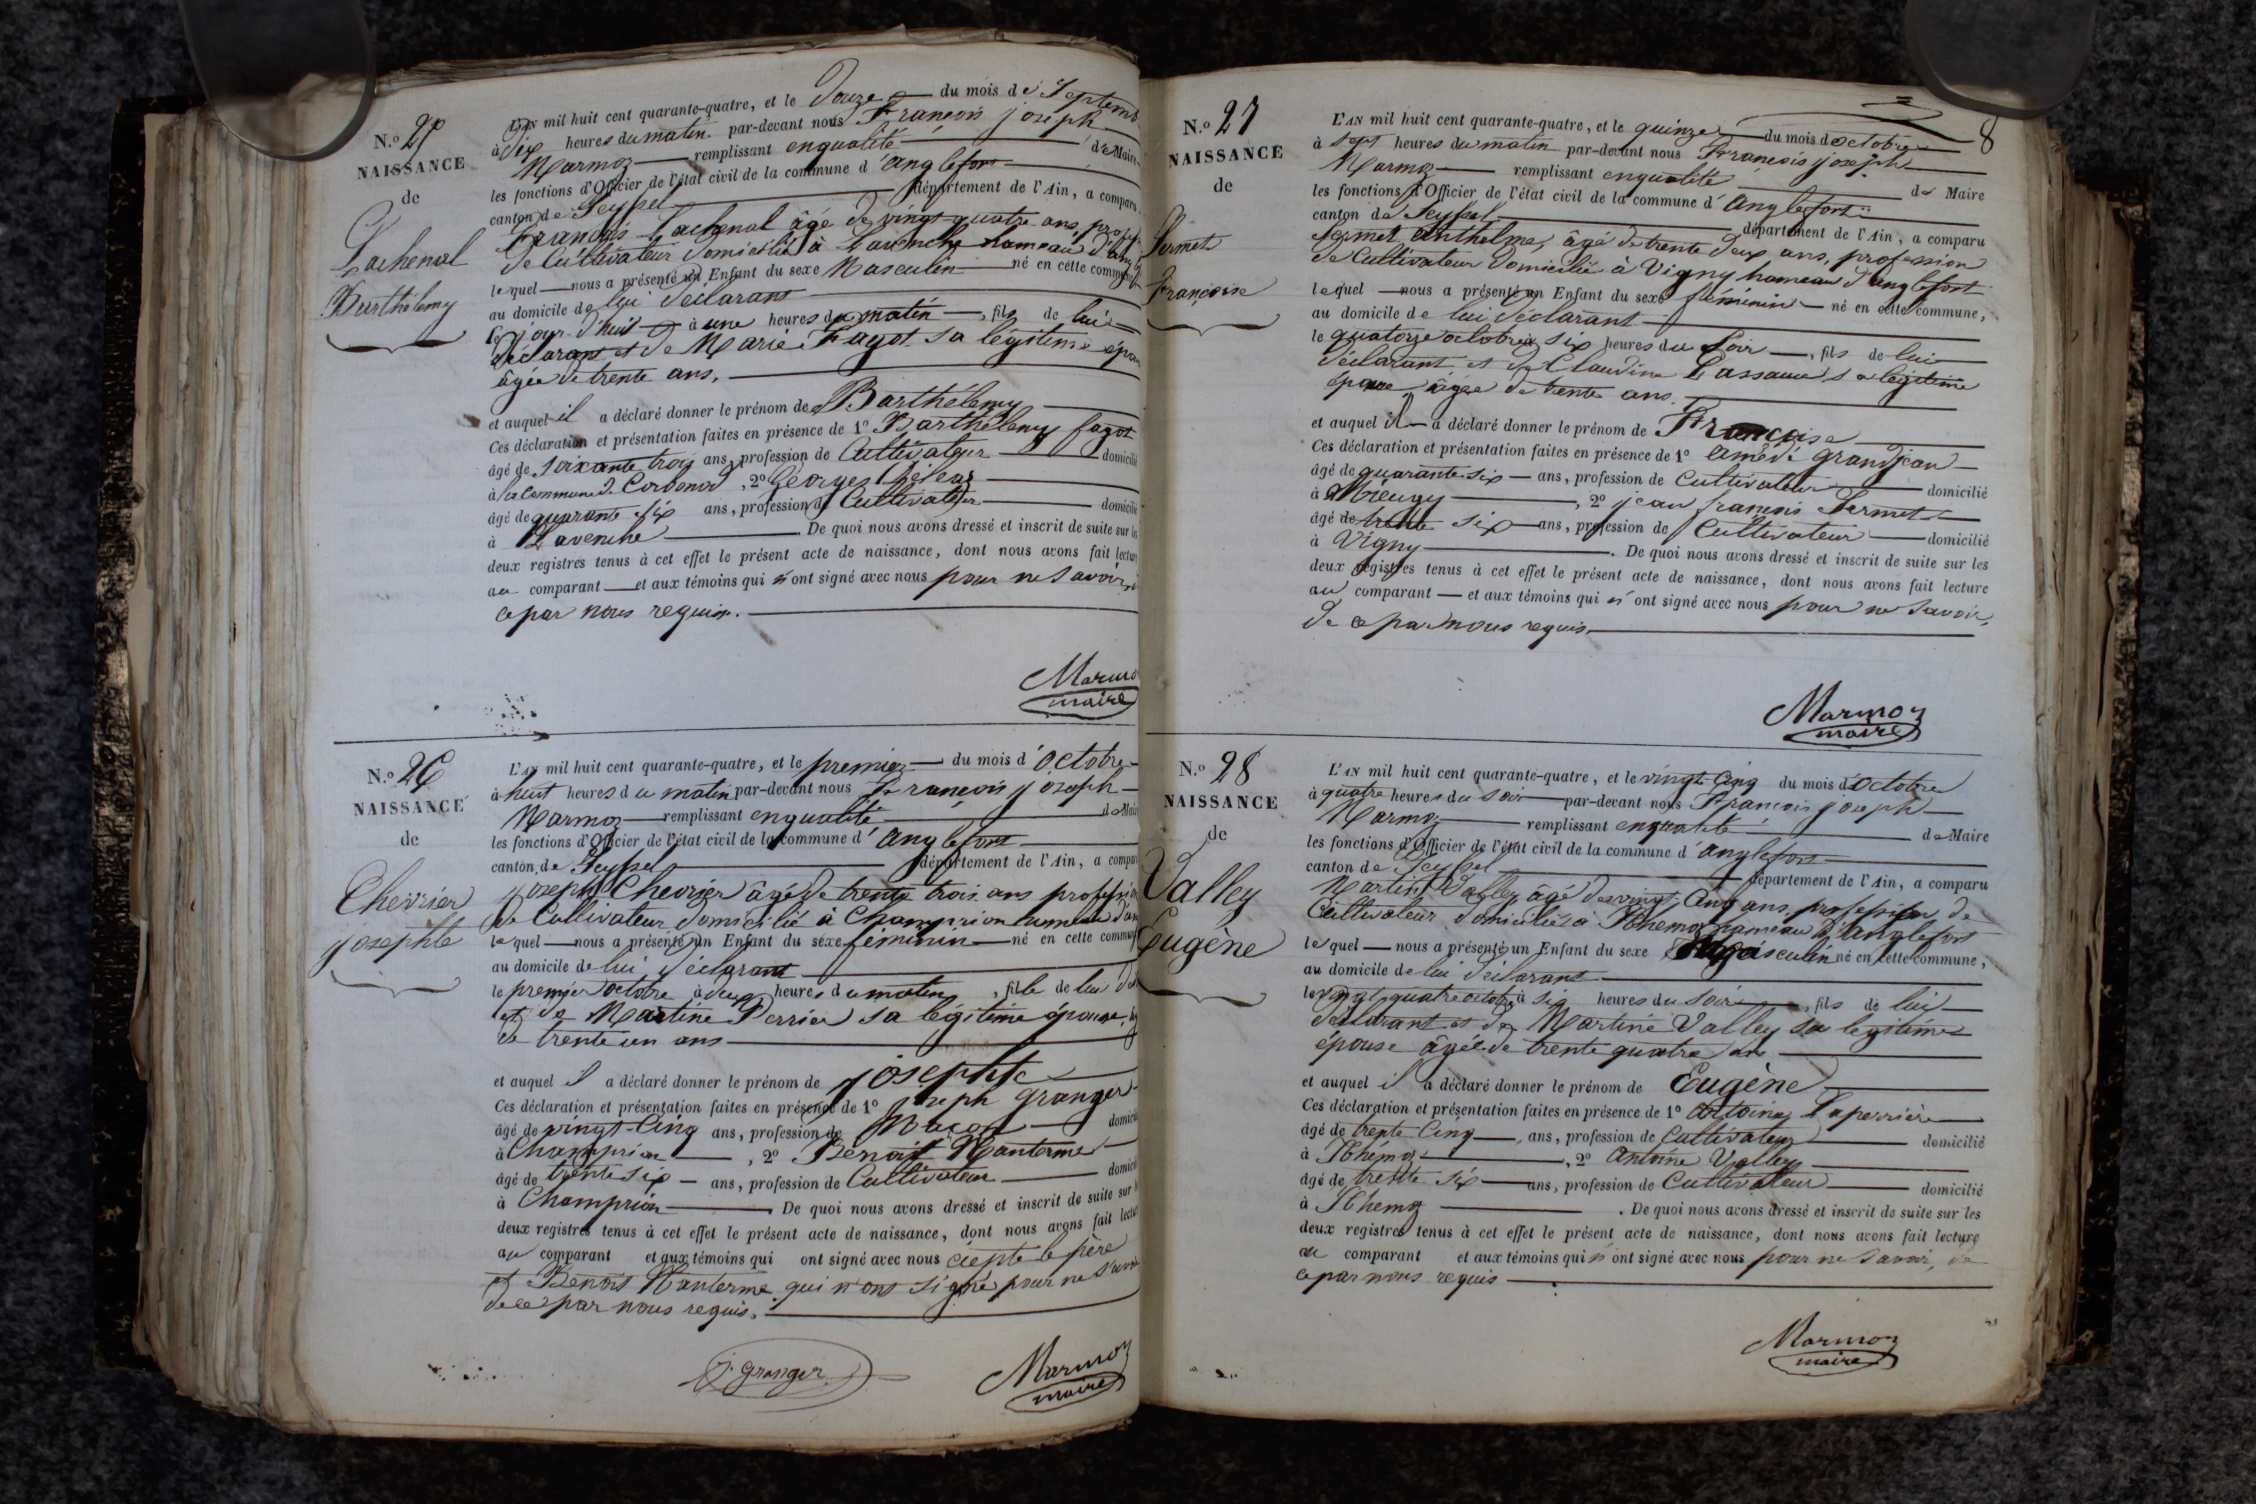 N.o 25
NAISSANCE
de
Lachenal
Barthélemy
L'AN mil huit cent quarante-quatre, et le Douze du mois de Septemb
à dix heures du matin par-devant nous François joseph
Marmoz remplissant enqualité de Maire
les fonctions d'Officier de l'état civil de la commune d'anglefort
canton de Seyssel département de l'Ain, a comparu
François Lachenal âgé de vingt quatre ans, profess
de Cultivateur domicilié à Lavenche hameau d'ang
lequel nous a présenté un Enfant du sexe Masculin né en cette commune
au domicile de lui déclarant
le jour d'huit à une heures du matin, fils de lui
déclarant et de Marie Fagot sa légitime épou
âgée de trente ans,
et auquel il a déclaré donner le prénom de Barthélemy
Ces déclaration et présentation faites en présence de 1o Barthélemy fagot
âgé de soixante trois ans, profession de Cultivateur domicilié
à la Commune de Corbonod, 2o Georges
âgé de quarante six ans, profession de Cultivateur domicilié
à Lavenche De quoi nous avons dressé et inscrit de suite sur les
deux registres tenus à cet effet le présent acte de naissance, dont nous avons fait lecture
au comparant et aux témoins qui n'ont signé avec nous pour ne savoir, d
ce par nous requis.
Marmo
maire
N.o 26
NAISSANCE
de
Chevrier
josephte
L'AN mil huit cent quarante-quatre, et le premier du mois d'octobre
à huit heures du matin par-devant nous François joseph
Marmoz remplissant enqualité de Mair
les fonctions d'Officier de l'état civil de la commune d'anglefort
canton de Seyssel département de l'Ain, a compar
joseph Chevrier âgé de trente trois ans profession
de Cultivateur domicilié à Champrion hameau d'an
lequel nous a présenté un Enfant du sexe féminin né en cette commun
au domicile de lui déclarant
le premier octobre à deux heures du matin, fille de lui dé
et de Martine Perrier sa légitime épouse, âg
de trente un ans
et auquel il a déclaré donner le prénom de josephte
Ces déclaration et présentation faites en présence de 1o joseph granger
âgé de vingt-Cinq ans, profession de Maçon domicil
à Champrion, 2o Benoit Manterme
âgé de trente six ans, profession de Cultivateur domicil
à Champrion De quoi nous avons dressé et inscrit de suite sur l
deux registres tenus à cet effet le présent acte de naissance, dont nous avons fait lectur
au comparant et aux témoins qui ont signé avec nous cepte le père
et Benoit Manterme qui n'ont signé pour ne savoir
de ce par nous requis.
J. granger
Marmoz
maire
8
N.o 27
NAISSANCE
de
Fermet
Françoise
L'AN mil huit cent quarante-quatre, et le quinze du mois d'octobre
à sept heures du matin par-devant nous François joseph
Marmoz remplissant enqualité de Maire
les fonctions d'Officier de l'état civil de la commune d'anglefort
canton de Seyssel département de l'Ain, a comparu
fermet anthelme, âgé de trente deux ans, profession
de Cultivateur domicilié à Vigny hameau d'anglefort
lequel nous a présenté un Enfant du sexe féminin né en cette commune,
au domicile de lui déclarant
le quatorze octobre à six heures du soir, fils de lui
déclarant, et de Claudine Lassauce sa légitime
épouse âgée de trente ans.
et auquel il a déclaré donner le prénom de Françoise
Ces déclaration et présentation faites en présence de 1o amédé grandjean
âgé de quarante six ans, profession de Cultivateur domicilié
à Mieugy, 2o jean françois Fermet
âgé de trente six ans, profession de Cultivateur domicilié
à Vigny. De quoi nous avons dressé et inscrit de suite sur les
deux registres tenus à cet effet le présent acte de naissance, dont nous avons fait lecture
au comparant et aux témoins qui n'ont signé avec nous pour ne savoir,
de ce par nous requis.
Marmoz
maire
N.o 28
NAISSANCE
de
Valley
Eugène
L'AN mil huit cent quarante-quatre, et le vingt Cinq du mois d'octobre
à quatre heures du soir par-devant nous François joseph
Marmoz remplissant enqualité de Maire
les fonctions d'Officier de l'état civil de la commune d'anglefort
canton de Seyssel département de l'Ain, a comparu
Martin Valley âgé de vingt-Cinq ans, profession de
Cultivateur domicilié à Rhémoz hameau d'anglefort
lequel nous a présenté un Enfant du sexe Masculin né en cette commune,
au domicile de lui déclarant
le vingt quatre octobre à six heures du soir, fils de lui
déclarant et de Martine Valley sa légitime
épouse âgée de trente quatre ans
et auquel il a déclaré donner le prénom de Eugène
Ces déclaration et présentation faites en présence de 1o Antoine Laperrière
âgé de trente Cinq ans, profession de Cultivateur domicilié
à Rhémoz, 2o Antoine Valley
âgé de trente six ans, profession de Cultivateur domicilié
à Rhémoz. De quoi nous avons dressé et inscrit de suite sur les
deux registres tenus à cet effet le présent acte de naissance, dont nous avons fait lecture
au comparant et aux témoins qui n'ont signé avec nous pour ne savoir, de
ce par nous requis
Marmoz
maire